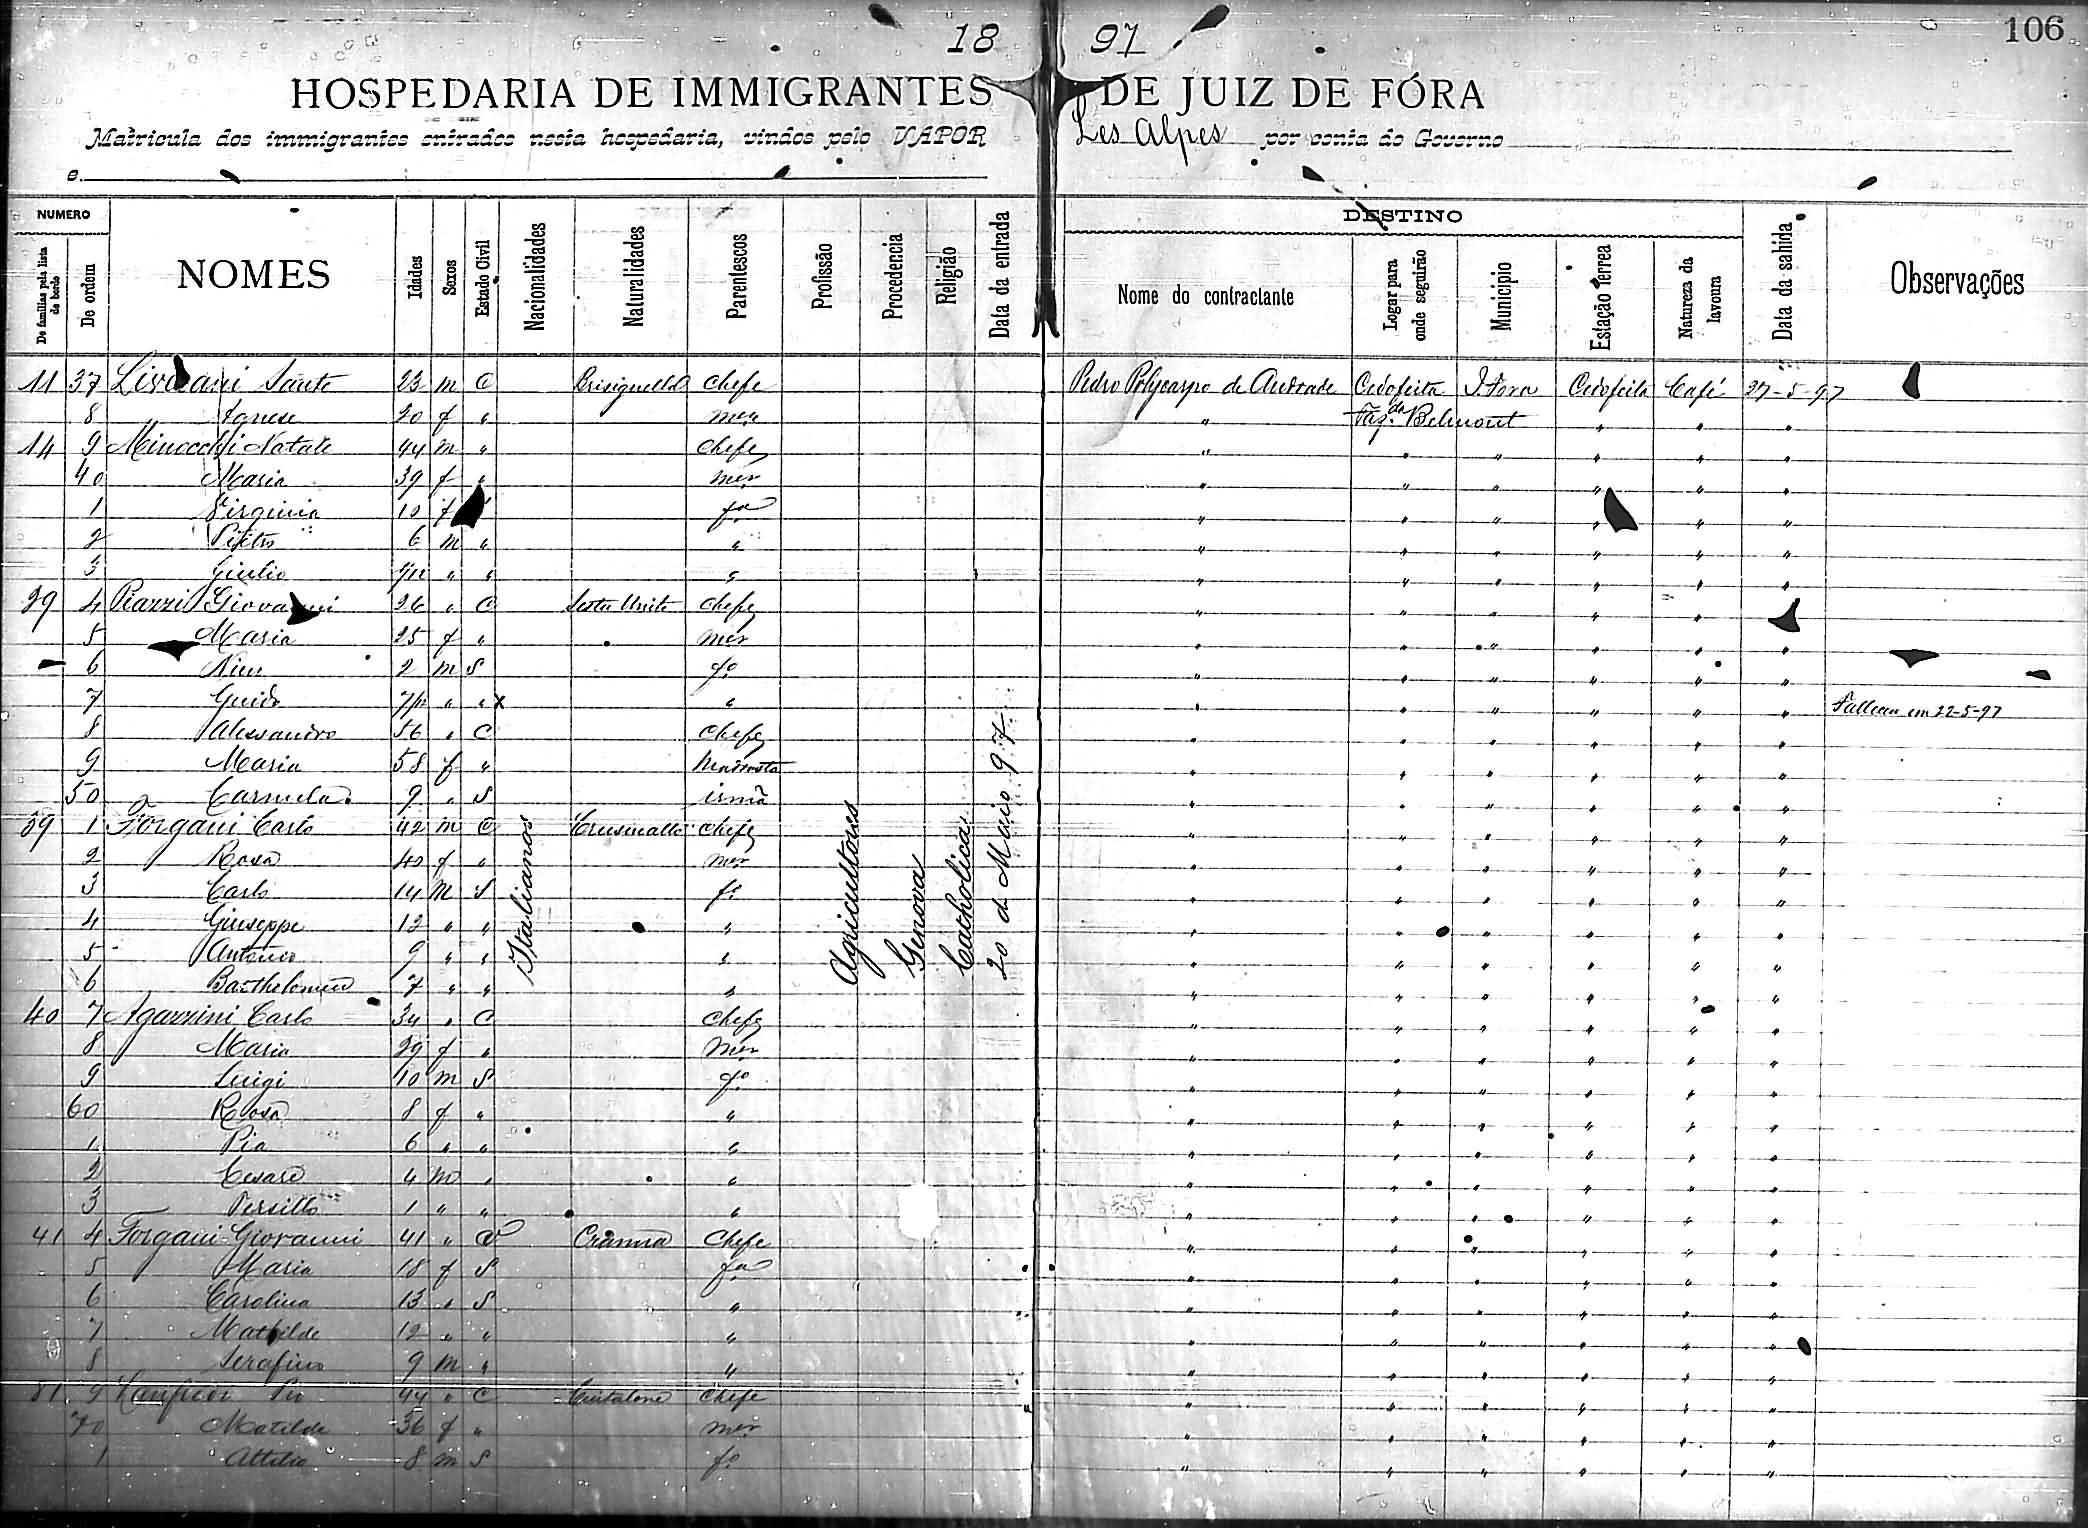 106
18 97
HOSPEDARIA DE IMMIGRANTES DE JUIZ DE FÓRA
Matricula dos immigrantes entrados nesta hospedaria, vindos pelo VAPOR Les Alpes por conta do Governo
e
NUMERO DESTINO
De familias pela lista de bordo De ordem NOMES Idades Sexos Estado Civil Nacionalidades Naturalidades Parentescos Profissão Procedencia Religião Data da entrada Nome do contractante Logar para onde seguirão Municipio Estação ferrea Natureza da lavoura Data da sahida Observações
11 37 Sante 23 m C Chefe Pedro Polycarpo de Andrade Cedofeita J. Fora Cedofeita Café 27-5-97
8 Agnese 20 f " mer " Faz.da Belmont " " "
14 9 Minocchi Natale 44 m " Chefe " " " " " "
40 Maria 39 f " mer " " " " " "
1 Virginia 10 f fa " " " " " "
2 Pietro 6 m " " " " " " " "
3 Giulio " " " " " " " " "
29 4 Piazzi Giovanni 26 " C Chefe " " " " "
5 Maria 25 f " mer " " " " " "
6 2 m S fo " " " " " "
7 Guido 7/12 " " x " " " " " " " Falleceu em 22-5-97
8 Alessandro 56 " C Chefe " " " " " "
9 Maria 58 f " Madrasta " " " " " "
50 Carmela 9 " S irmã " " " " " "
39 1 Forgani Carlo 42 m C Chefe " " " " " "
2 Rosa 40 f " mer " " " " " "
3 Carlo 14 m S fo " " " " " "
4 Giuseppe 12 " " " " " " " " "
5 Antonio 9 " " " " " " " " "
6 Bartholomeu 7 " " " " " " " " "
Italianos Agricultores Genova Catholica 20 de Maio 97
40 7 Agazzini Carlo 34 " C Chefe " " " " " "
8 Maria 29 f " mer " " " " " "
9 Luigi 10 m S fo " " " " " "
60 Rosa 8 f " " " " " " " "
1 Pia 6 " " " " " " " " "
2 Cesare 4 m " " " " " " " "
3 1 " " " " " " " " "
41 4 Forgani Giovanni 41 " V Cranna Chefe " " " " " "
5 Maria 18 f S fa " " " " " "
6 Carolina 13 " S " " " " " " "
7 Mathilde 12 " " " " " " " " "
8 Serafino 9 m " " " " " " " "
81 9 Pio 44 " C Chefe " " " " " "
70 Matilde 36 f " mer " " " " " "
1 Attilio 8 m S fo " " " " " "